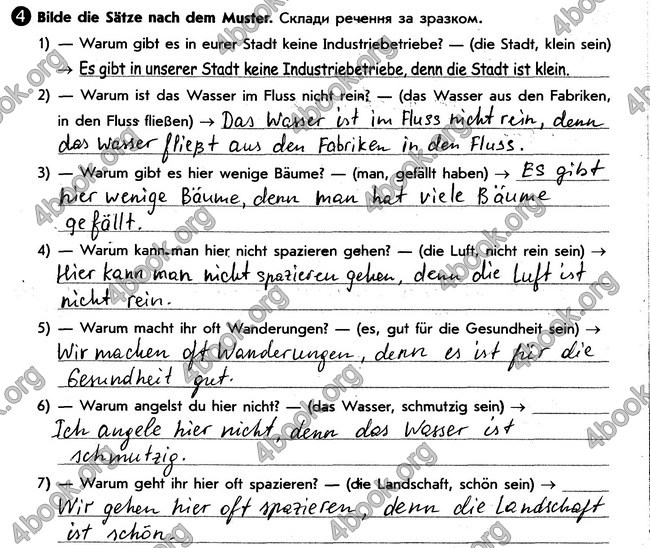 4 Bilde die Sätze nach dem Muster. Склади речення за зразком.
1) — Warum gibt es in eurer Stadt keine Industriebetriebe? — (die Stadt, klein sein)
→ Es gibt in unserer Stadt keine Industriebetriebe, denn die Stadt ist klein.
2) — Warum ist das Wasser im Fluss nicht rein? — (das Wasser aus den Fabriken,
in den Fluss fließen) → Das Wasser ist im Fluss nicht rein, denn
das Wasser fließt aus den Fabriken in den Fluss.
3) — Warum gibt es hier wenige Bäume? — (man, gefällt haben) → Es gibt
hier wenige Bäume, denn man hat viele Bäume
gefällt.
4) — Warum kann man hier nicht spazieren gehen? — (die Luft, nicht rein sein) →
Hier kann man nicht spazieren gehen, denn die Luft ist
nicht rein.
5) — Warum macht ihr oft Wanderungen? — (es, gut für die Gesundheit sein) →
Wir machen oft Wanderungen, denn es ist für die
Gesundheit gut.
6) — Warum angelst du hier nicht? — (das Wasser, schmutzig sein) →
Ich angele hier nicht, denn das Wasser ist
schmutzig.
7) — Warum geht ihr hier oft spazieren? — (die Landschaft, schön sein) →
Wir gehen hier oft spazieren, denn die Landschaft
ist schön.
4book.org
4book.org
4book.org
4book.org
4book.org
4book.org
4book.org
4book.org
4book.org
4book.org
4book.org